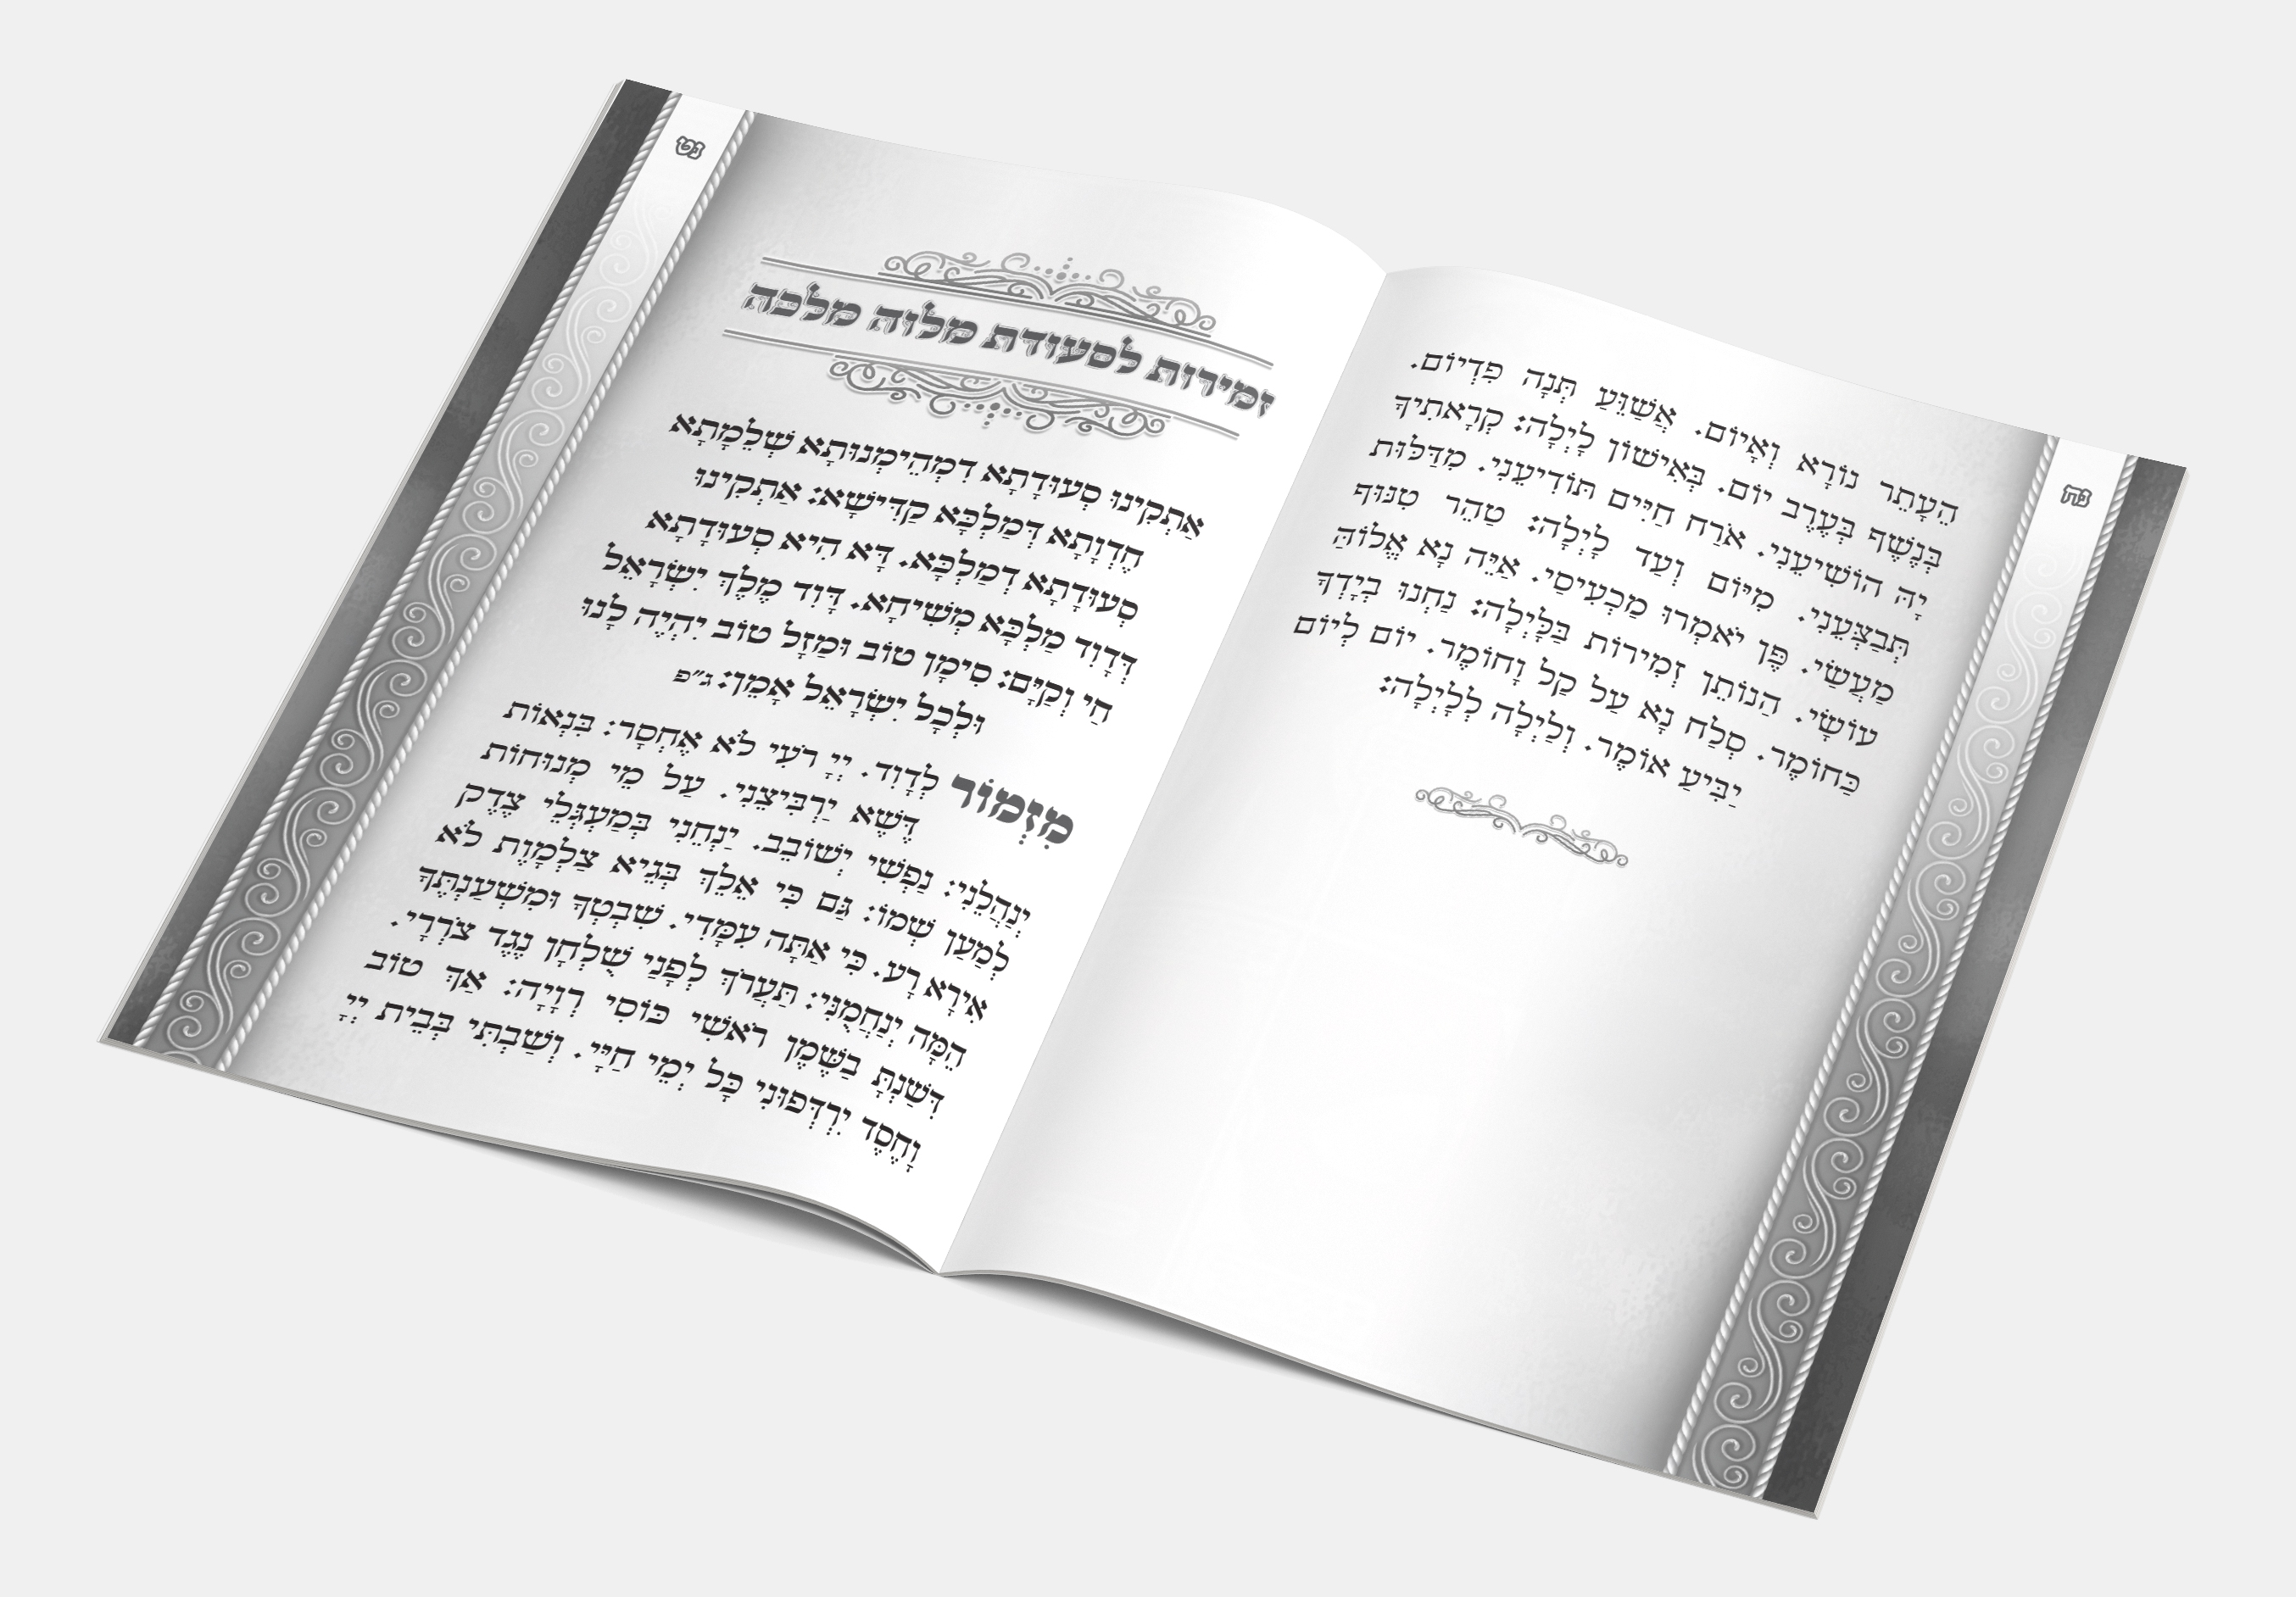 נח
הֵעָתֵר נוֹרָא וְאָיוֹם. אֲשַׁוֵּעַ תְּנָה פִּדְיוֹם.
בְּנֶשֶׁף בְּעֶרֶב יוֹם. בְּאִישׁוֹן לָיְלָה: קְרָאתִיךָ
יָהּ הוֹשִׁיעֵנִי. אֹרַח חַיִּים תּוֹדִיעֵנִי. מִדַּלּוּת
תְּבַצְּעֵנִי. מִיּוֹם וְעַד לָיְלָה: טַהֵר טִנּוּף
מַעֲשַׂי. פֶּן יֹאמְרוּ מַכְעִיסַי. אַיֵּה נָא אֱלוֹהַּ
עוֹשָׂי. הַנּוֹתֵן זְמִירוֹת בַּלָּיְלָה: נַחְנוּ בְיָדְךָ
כַּחוֹמֶר. סְלַח נָא עַל קַל וָחוֹמֶר. יוֹם לְיוֹם
יַבִּיעַ אוֹמֶר. וְלַיְלָה לְלָיְלָה:
נט
זמירות לסעודת מלוה מלכה
אַתְקִינוּ סְעוּדָתָא דִמְהֵימְנוּתָא שְׁלֵמָתָא
חֶדְוָתָא דְּמַלְכָּא קַדִּישָׁא: אַתְקִינוּ
סְעוּדָתָא דְמַלְכָּא. דָּא הִיא סְעוּדָתָא
דְּדָוִד מַלְכָּא מְשִׁיחָא. דָּוִד מֶלֶךְ יִשְׂרָאֵל
חַי וְקַיָּם: סִימָן טוֹב וּמַזָּל טוֹב יִהְיֶה לָנוּ
וּלְכָל יִשְׂרָאֵל אָמֵן: ג״פ
מִזְמוֹר לְדָוִד. יְיָ רֹעִי לֹא אֶחְסָר: בִּנְאוֹת
דֶּשֶׁא יַרְבִּיצֵנִי. עַל מֵי מְנוּחוֹת
יְנַהֲלֵנִי: נַפְשִׁי יְשׁוֹבֵב. יַנְחֵנִי בְּמַעְגְּלֵי צֶדֶק
לְמַעַן שְׁמוֹ: גַּם כִּי אֵלֵךְ בְּגֵיא צַלְמָוֶת לֹא
אִירָא רָע. כִּי אַתָּה עִמָּדִי. שִׁבְטְךָ וּמִשְׁעַנְתֶּךָ
הֵמָּה יְנַחֲמֻנִי: תַּעֲרֹךְ לְפָנַי שֻׁלְחָן נֶגֶד צֹרְרָי.
דִּשַּׁנְתָּ בַשֶּׁמֶן רֹאשִׁי כּוֹסִי רְוָיָה: אַךְ טוֹב
וָחֶסֶד יִרְדְּפוּנִי כָּל יְמֵי חַיָּי. וְשַׁבְתִּי בְּבֵית יְיָ